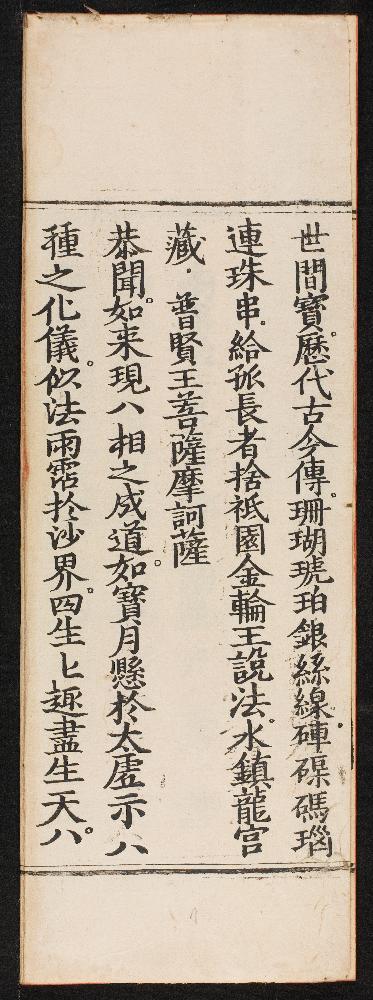 世間寳。歷代古今傳。珊瑚琥珀銀絲線。硨磲碼瑙
連珠串。給孤長者捨祇園金輪王說法。水鎮龍宮
藏．普賢王菩薩摩訶薩
恭聞。如来現八相之成道。如寳月懸於太虛示八
種之化儀。似法雨霑於沙界。四生七趣盡生天。八